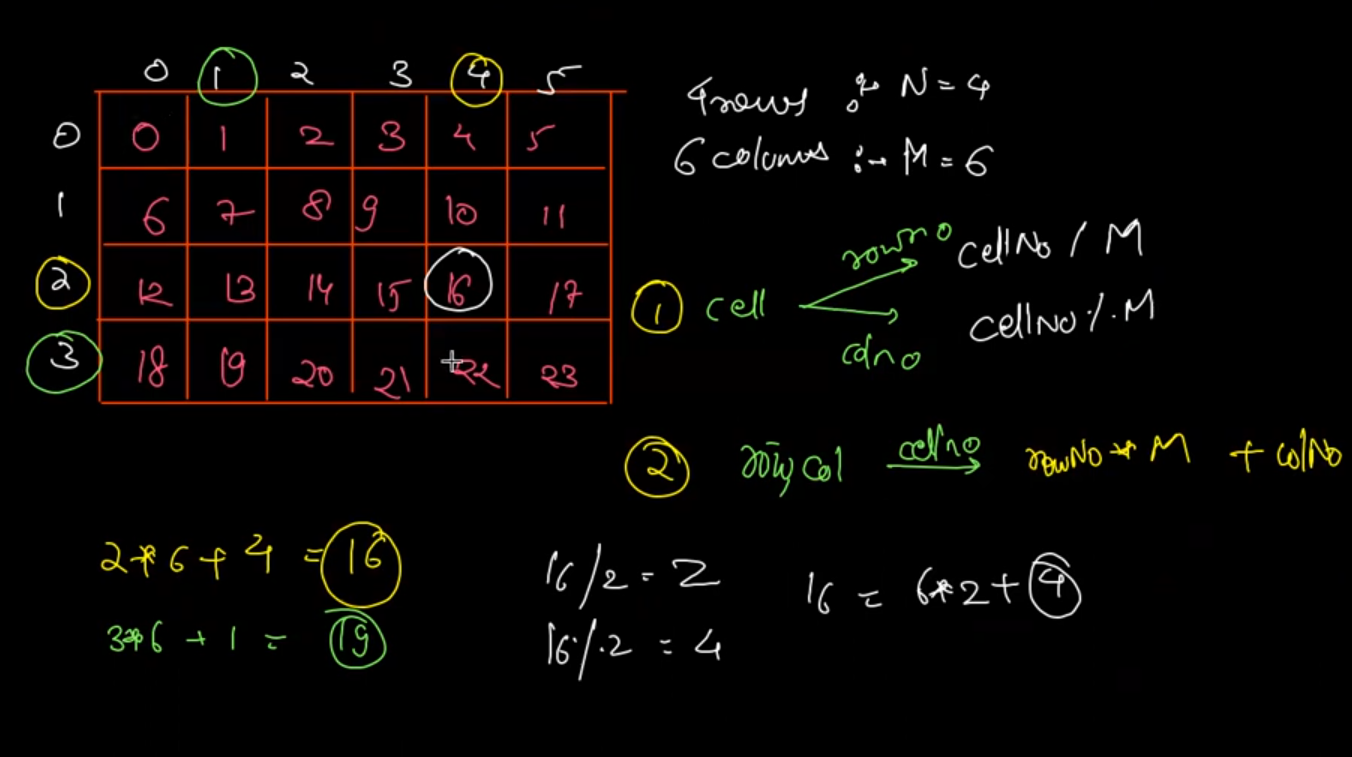 0 1 2 3 4 5
0 0 1 2 3 4 5
1 6 7 8 9 10 11
2 12 13 14 15 16 17
3 18 19 20 21 22 23
4 rows :- N = 4
6 columns :- M = 6
1 cell
rowno cellNo / M
colno cellNo % M
2 row, col cellno rowNo * M + colNo
2*6+4 = 16
3*6 + 1 = 19
16/2 = 2
16%2 = 4
16 = 6*2+4